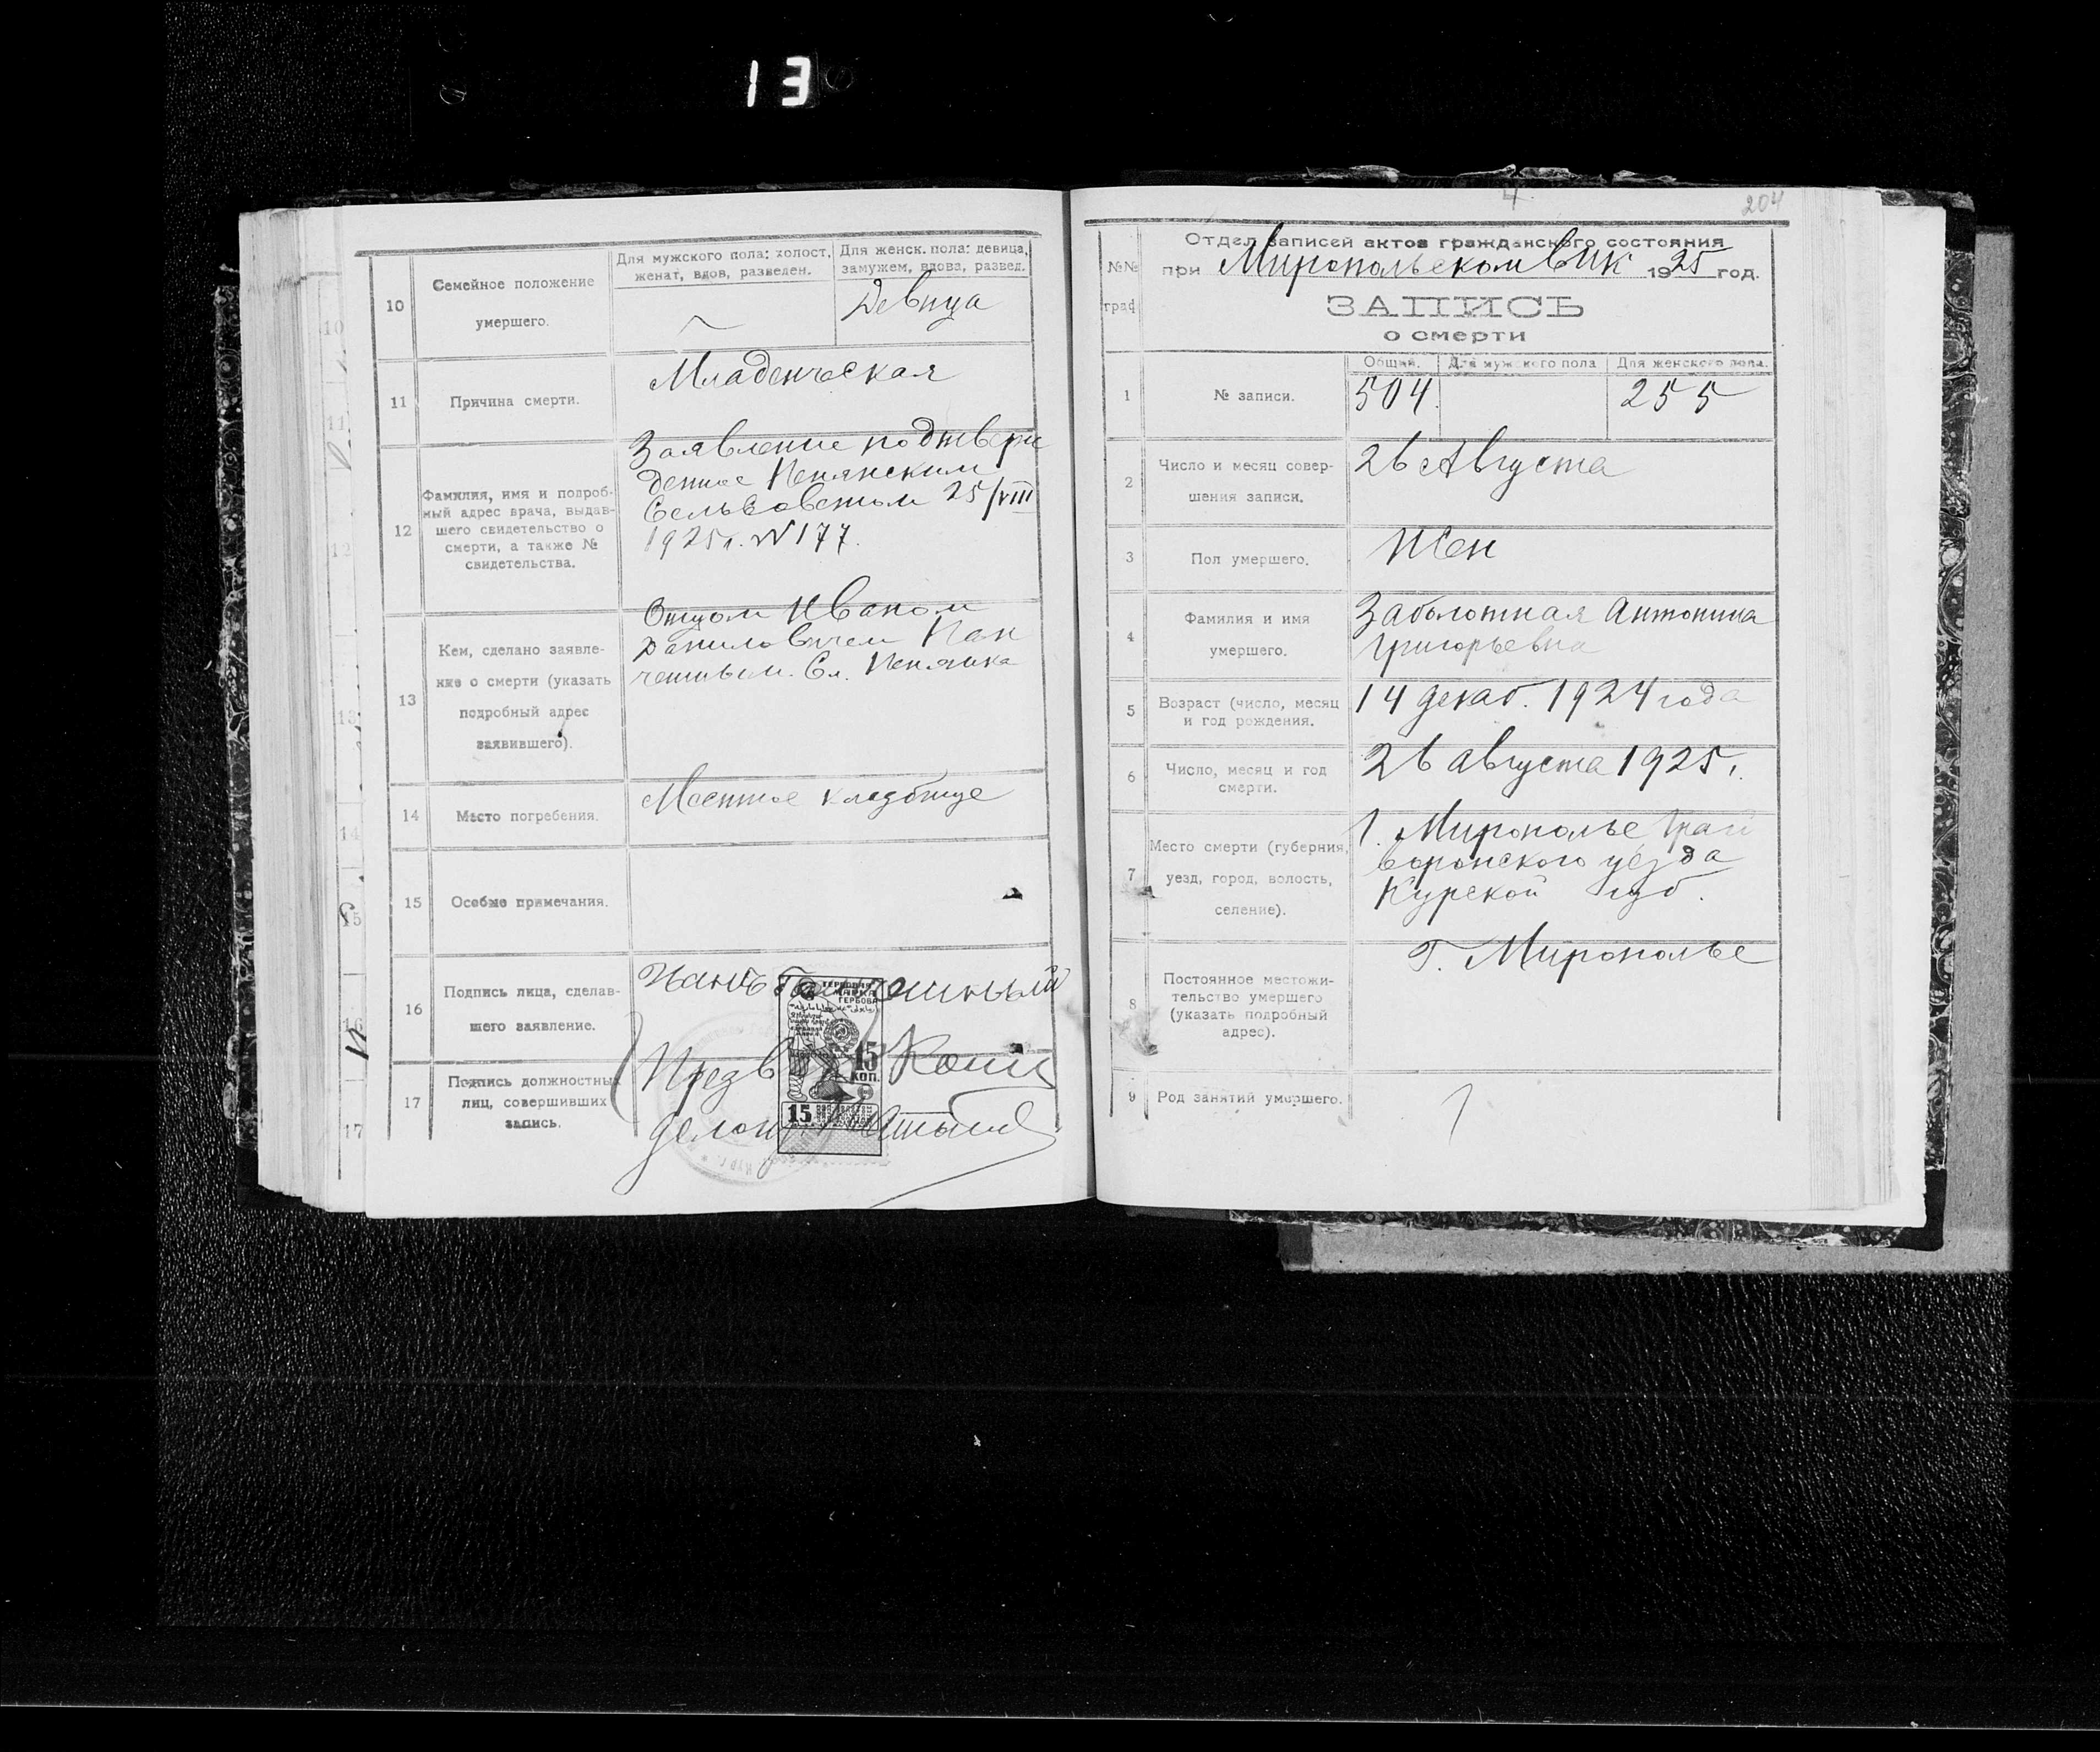 13
10
Семейное положение
умершего.
Для мужского пола: холост,
женат, вдов, разведен.
Для женск. пола: девица,
замужем, вдова, развед.
Девица
11
Причина смерти.
Младенческая
12
Фамилия, имя и подроб-
ный адрес врача, выдав-
шего свидетельство о
смерти, а также №
свидетельства.
Заявление подтверж
денное Пенянским
Сельсоветом 25/VIII
1925г. № 177.
13
Кем, сделано заявле-
ние о смерти (указать
подробный адрес
заявившего).
Отцом Иваном
Даниловичем Пан
Сл. Пенянка
14
Место погребения.
Местное кладбище
15
Особые примечания.
16
Подпись лица, сделав-
шего заявление.
17
Подпись должностных
лиц, совершивших
запись.
Предв
делоп
ГЕРБОВАЯ
МАРКА
15
КОП.
15
204
№№
граф
Отдел записей актов гражданского состояния
при Миропольском ВИК 1925 год.
ЗАПИСЬ
о смерти
1
№ записи.
Общий. Для мужского пола Для женского пола.
504. 255
2
Число и месяц совер-
шения записи.
26 Августа
3
Пол умершего.
Жен
4
Фамилия и имя
умершего.
Заболотная Антонина
Григорьевна
5
Возраст (число, месяц
и год рождения.
14 декаб. 1924 года
6
Число, месяц и год
смерти.
26 августа 1925 г.
7
Место смерти (губерния,
уезд, город, волость,
селение).
Г. Мирополье Грай
воронского уезда
Курской губ.
8
Постоянное местожи-
тельство умершего
(указать подробный
адрес).
Г. Мирополье
9
Род занятий умершего.